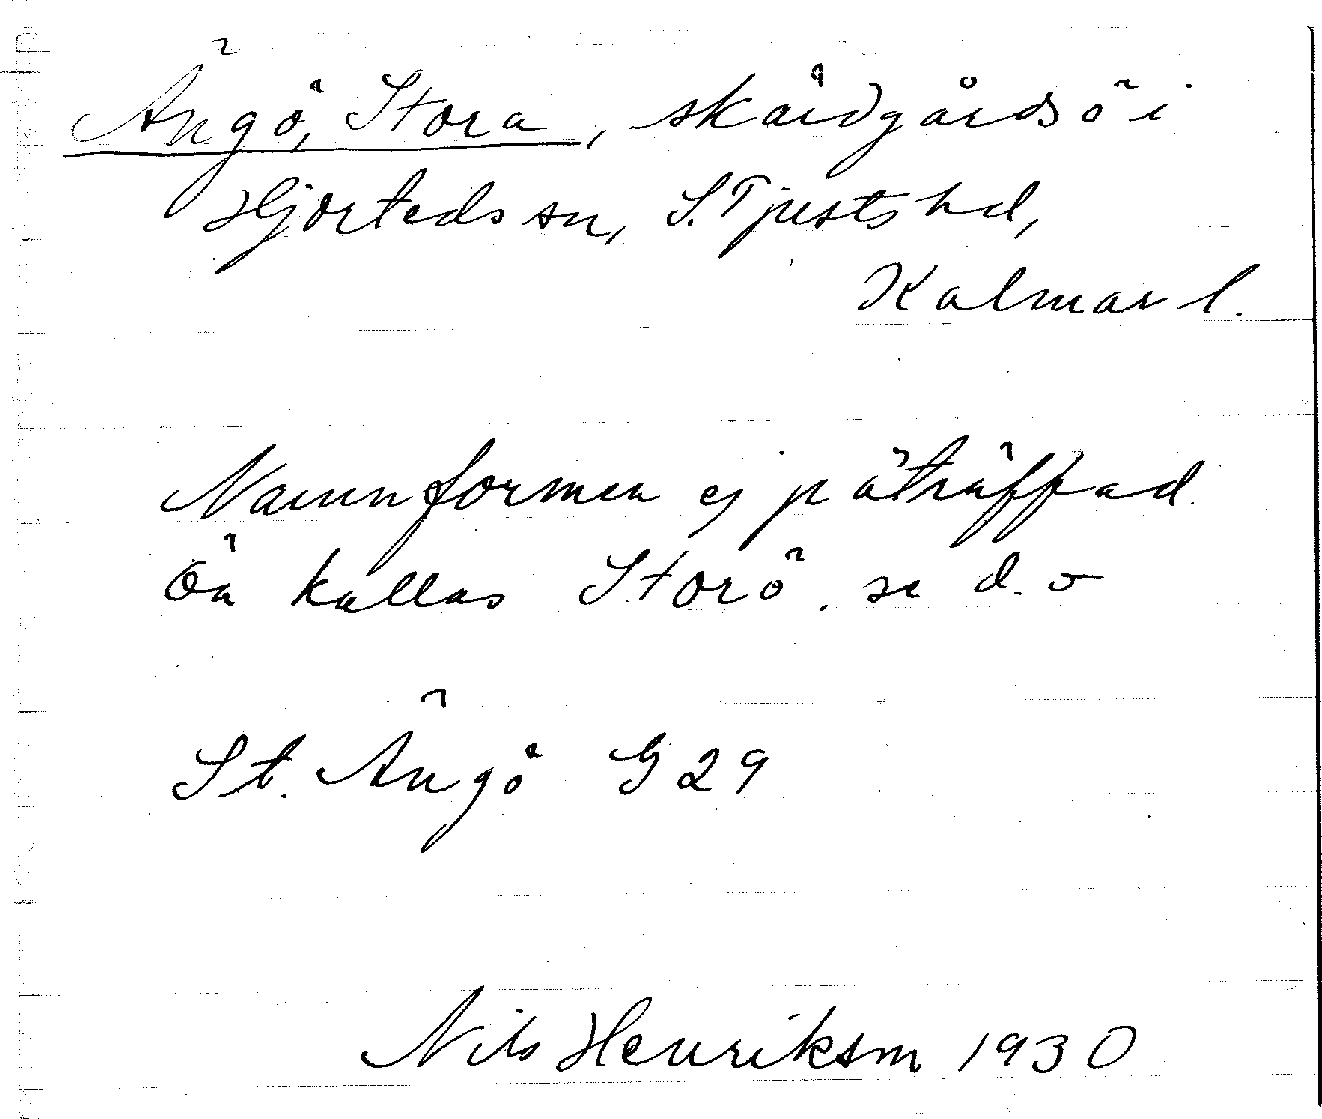 Ängö, Stora, skärdgårdsö i
Hjorteds sn, S. Tjusts hd,
Kalmar l.
Namnformen ej påträffad
Ön kallas Storö. se d. o
St. Ängö G 29
Nils Henrikson 1930